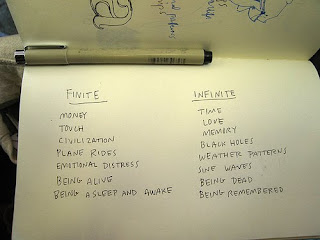 FINITE
MONEY
TOUCH
CIVILIZATION
PLANE RIDES
EMOTIONAL DISTRESS
BEING ALIVE
BEING ASLEEP AND AWAKE
INFINITE
TIME
LOVE
MEMORY
BLACK HOLES
WEATHER PATTERNS
SINE WAVES
BEING DEAD
BEING REMEMBERED